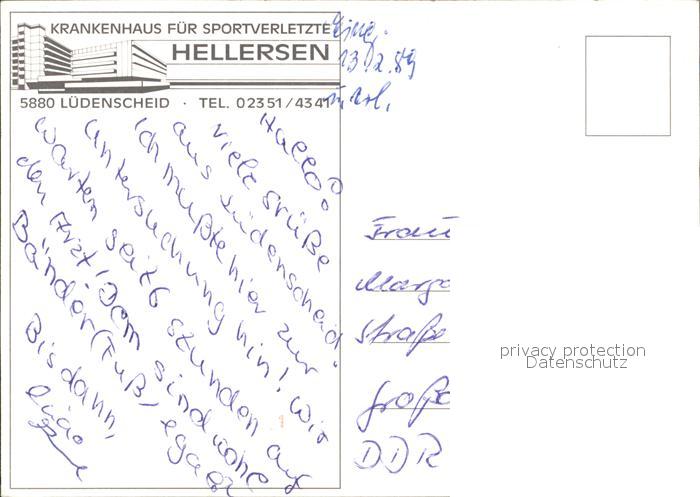 KRANKENHAUS FÜR SPORTVERLETZTE
HELLERSEN
5880 LÜDENSCHEID · TEL. 0 23 51 / 43 41
Eing.
13.2.89
Hallo!
viele Grüße
aus Lüdenscheid.
Ich mußte hier zur
Untersuchung hin! Wir
warten seit 6 Stunden auf
den Arzt! Dem sind wohl
Bänder (Fuß) egal
Bis dann,
Frau
Marga
Straße
Große
DDR
privacy protection
Datenschutz